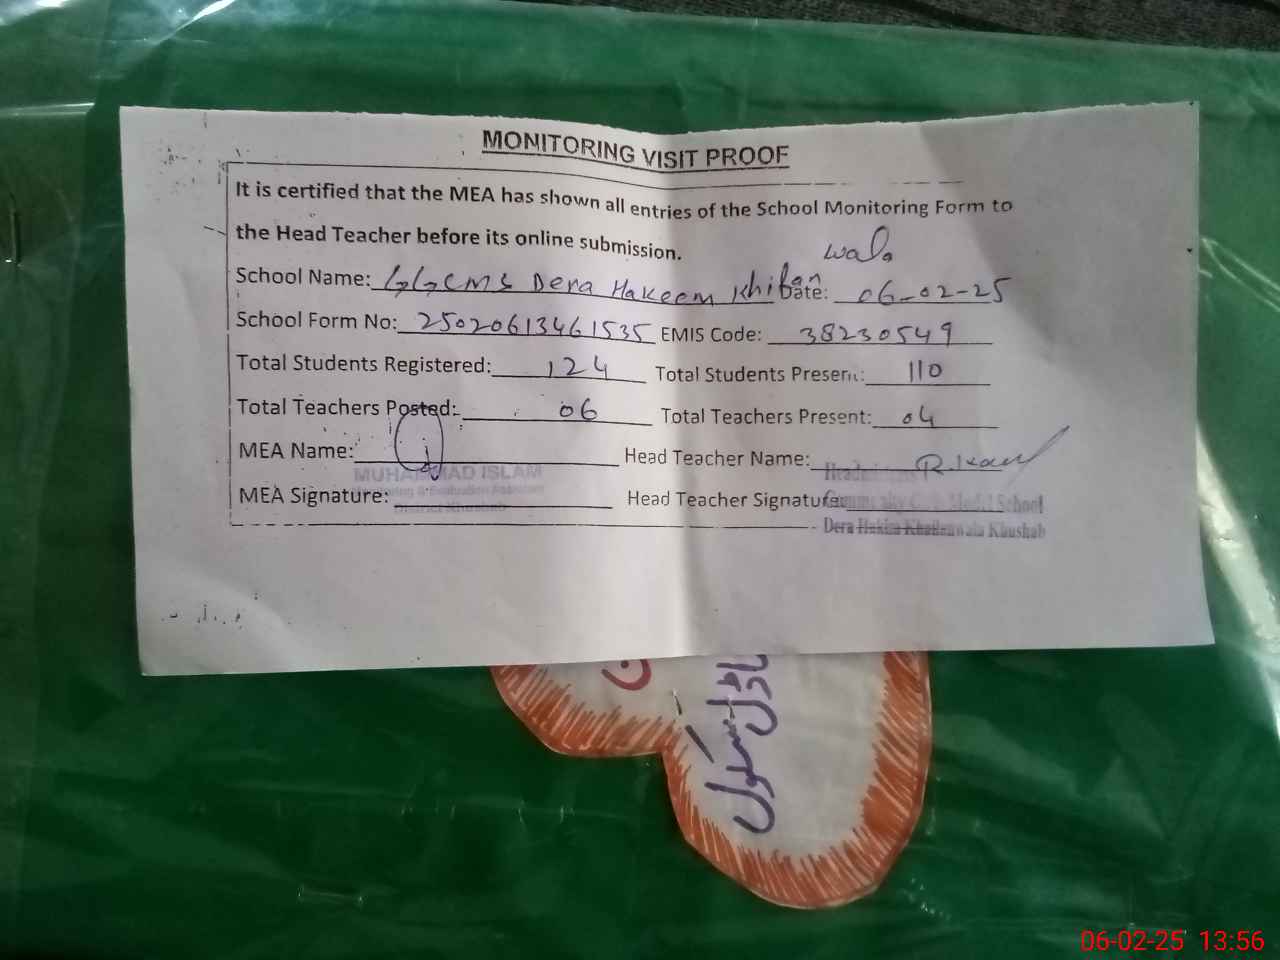 MONITORING VISIT PROOF
It is certified that the MEA has shown all entries of the School Monitoring Form to
the Head Teacher before its online submission.
wala
School Name: GGCMS Dera Hakeem Khilan Date: 06-02-25
School Form No: 25020613461535 EMIS Code: 38230549
Total Students Registered: 124 Total Students Present: 110
Total Teachers Posted: 06 Total Teachers Present: 04
MEA Name: Head Teacher Name:
MUHAMMAD ISLAM
Monitoring & Evaluation Assistant
District Khushab
MEA Signature: Head Teacher Signature:
Headmistress
Community Girls Model School
Dera Hakim Khailanwala Khushab
ماڈل
سکول
06-02-25 13:56